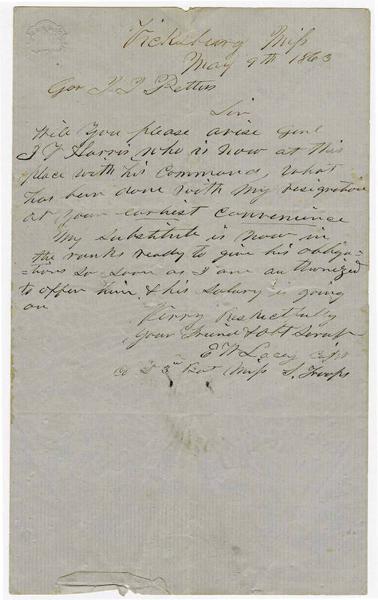 Vicksburg Miss
May 9th 1863
Gov J J Pettus
Sir
Will You please arise Genl
J Z Harris who is now at this
place with his Command, what
has been done with my resignation
at your earliest convenience
My substitute is now in
the ranks ready to give his obliga-
=tions so soon as I am authorized
to offer him, & his salary is going
on
Verry Respectfully
Your Friend & Obt Servt
E W Lacey Capt
Co D 3rd Bat Miss S. Troops